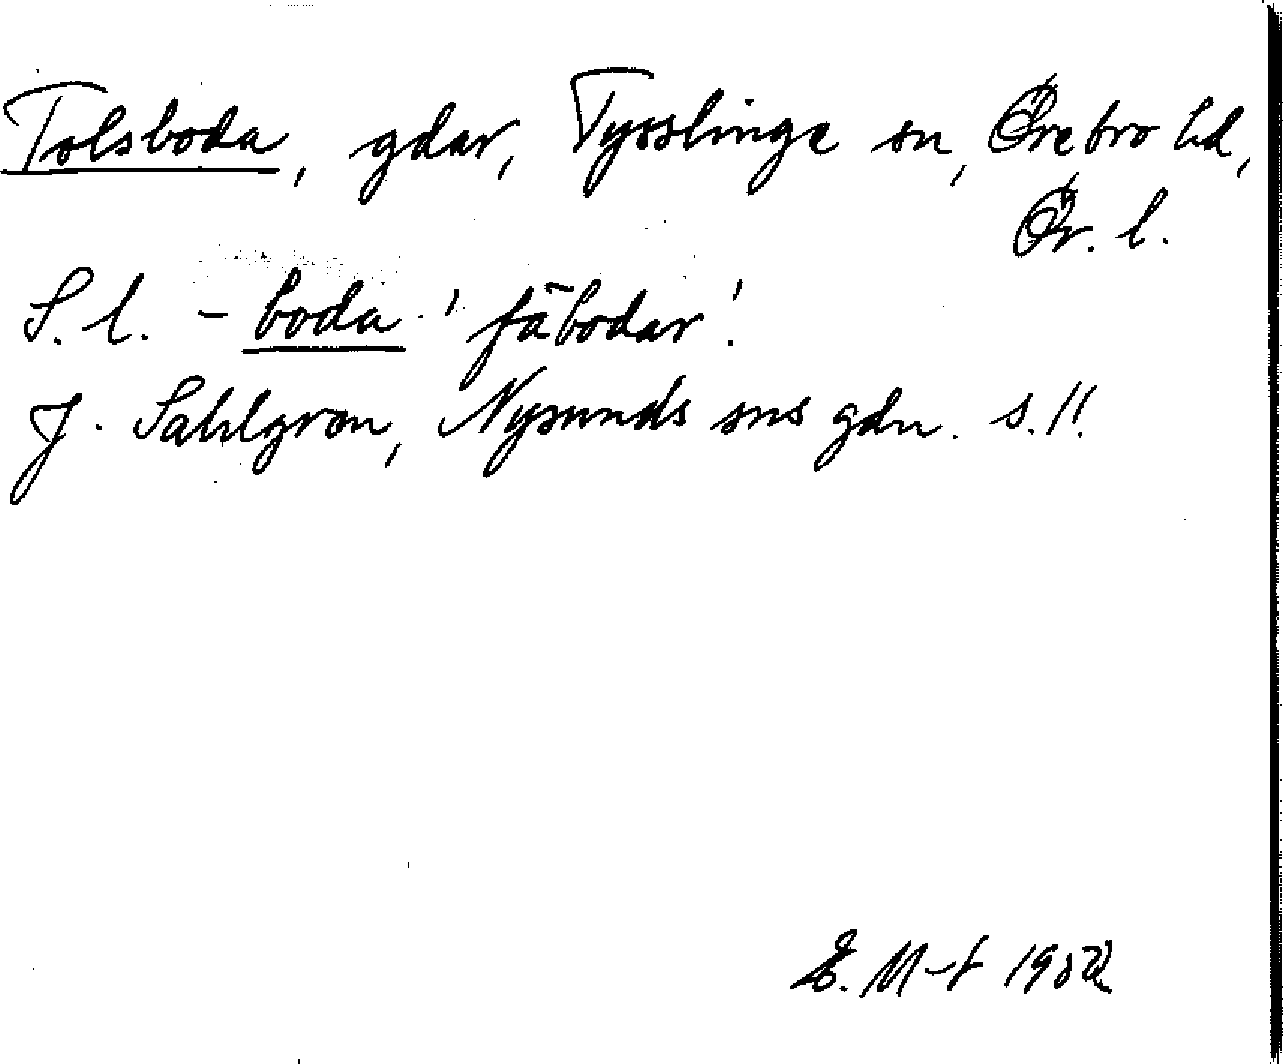 Tolsboda, gdar, Tysslinge sn, Örebro hd,
Ör. l.
S. l. - boda 'fäbodar'.
J. Sahlgren, Nysunds sns gdn. s. 11.
E. M-t 1902